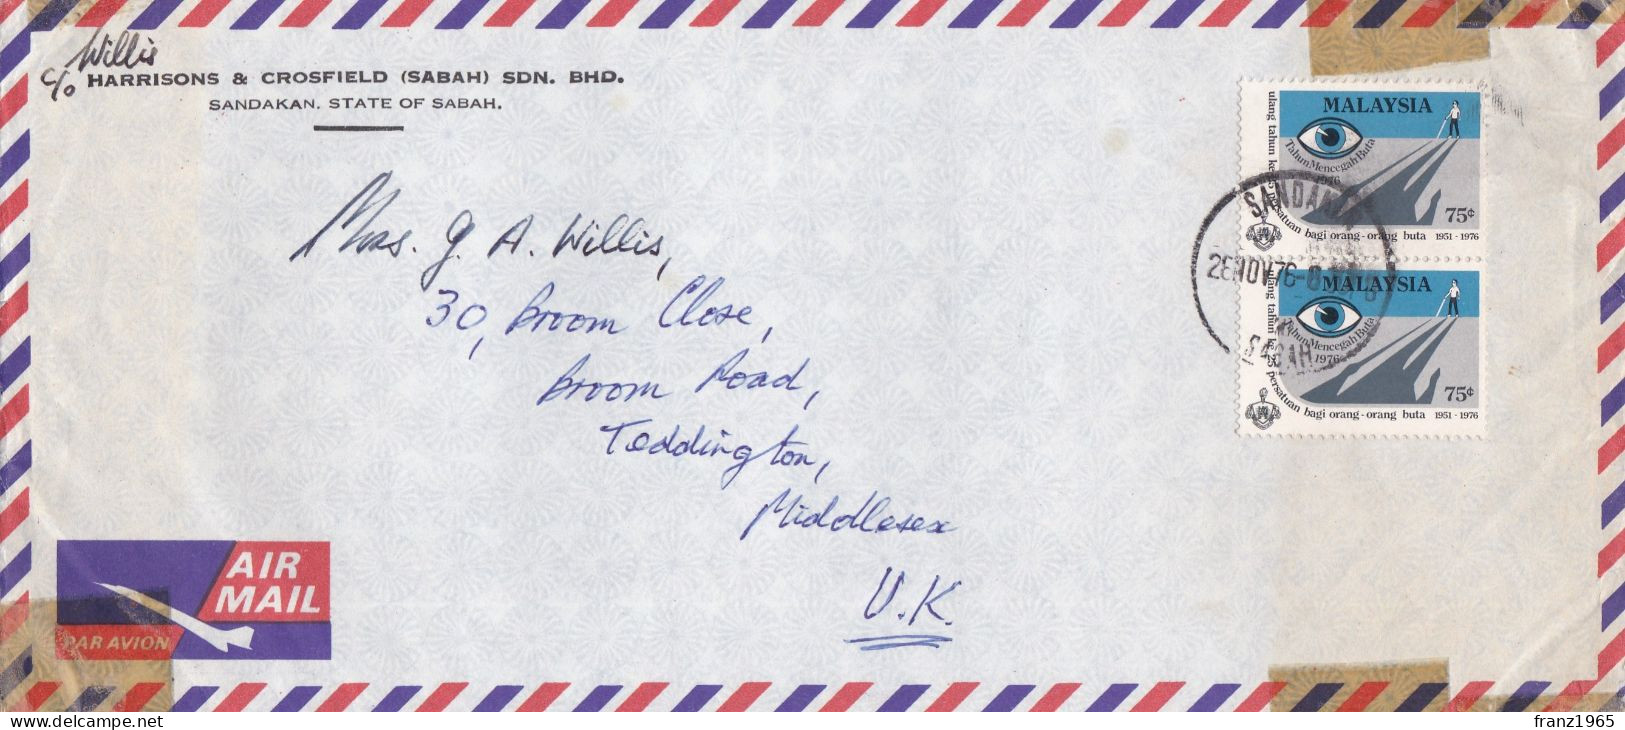 Willis
c/o HARRISONS & CROSFIELD (SABAH) SDN. BHD.
SANDAKAN. STATE OF SABAH.
Mrs. G. A. Willis,
30, Broom Close,
Broom Road,
Teddington,
Middlesex
U.K.
AIR
MAIL
PAR AVION
MALAYSIA
Tahun Mencegah Buta
1976
75¢
ulang tahun ke 25 persatuan bagi orang-orang buta 1951-1976
SANDAKAN
26 NOV 76
SABAH
MALAYSIA
Tahun Mencegah Buta
1976
75¢
ulang tahun ke 25 persatuan bagi orang-orang buta 1951-1976
franz1965